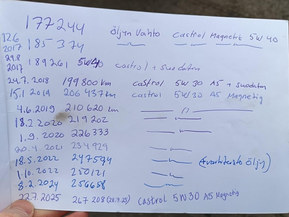 177244 Öljyn Vaihto Castrol Magnatec 5W40
12.6 2017 185374
21.8 2017 189261 5W40 castrol + suodatin
24.7.2018 199.800 km Castrol 5W30 A5 + suodatin
15.1.2019 206437 km Castrol 5W30 A5 Magnatec
4.6.2019 210620 km — 11 —
18.2.2020 219202
1.9.2020 226333
20.4.2021 234929
18.5.2022 247594
1.10.2022 250121
8.2.2024 256658
22.7.2025 267.208 Castrol 5W30 A5 Magnatec